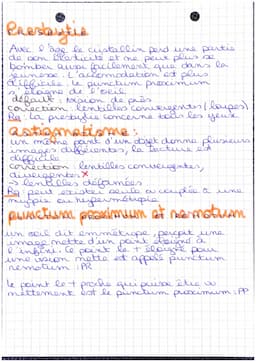 Presbytie
Avec l'âge le cristallin perd une partie
de son élasticité et ne peut plus se
bomber aussi facilement que dans la
jeunesse. L'accomodation est plus
difficile. le punctum proximum
s'éloigne de l'oeil.
défaut : vision de près
correction : lentilles convergentes (loupes)
Rq : La presbytie concerne tous les yeux.
astigmatisme :
un même point d'un objet donne plusieurs
images différentes, la lecture est
difficile
correction : lentilles convergentes,
divergentes
lentilles déformées
Rq peut exister seule ou couplée à une
myopie ou hypermétropie
punctum proximum et remotum
un oeil dit emmétrope, perçoit une
image nette d'un point éloigné à
l'infini. Ce point le + éloigné pour
une vision nette est appelé punctum
remotum : PR
Le point le + proche qui puisse être vu
nettement est le punctum proximum : PP